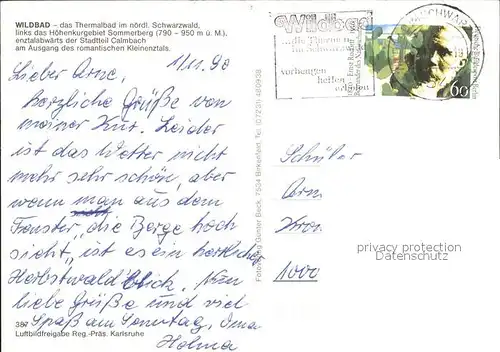 WILDBAD – das Thermalbad im nördl. Schwarzwald,
links das Höhenkurgebiet Sommerberg (790 – 950 m ü. M.),
enztalabwärts der Stadtteil Calmbach
am Ausgang des romantischen Kleinenztals.
1/11. 90
Lieber Arne,
herzliche Grüße von
meiner Kur. Leider
ist das Wetter nicht
mehr sehr schön, aber
wenn man aus dem
Fenster, die Berge hoch
sieht, ist es ein herrlicher
Herbstwald Blick. Nun
liebe Grüße und viel
Spaß am Sonntag, Oma
Helma
387
Luftbildfreigabe Reg.-Präs. Karlsruhe
Foto-Verlag Günter Beck, 7534 Birkenfeld, Tel. (07231) 480938
Wildbad
die Therme
im Schwarzwald
vorbeugen
heilen
erholen
60
Schüler
Arn
Kron
1000
privacy protection
Datenschutz